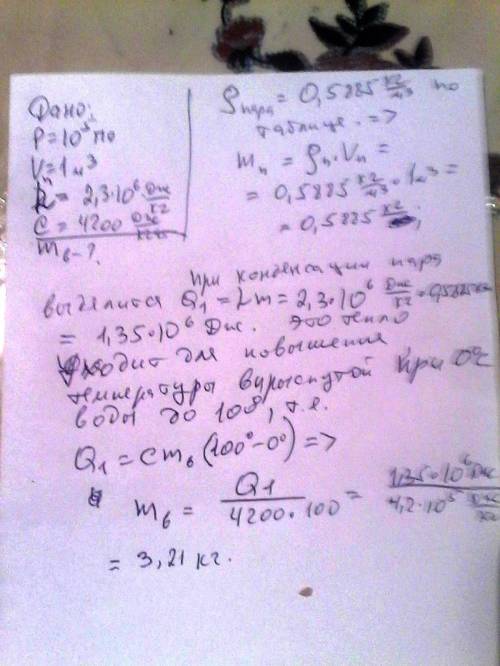 Дано:
P = 10⁵ Па
Vп = 1 м³
L = 2,3·10⁶ Дж/кг
C = 4200 Дж/кг·
mв - ?
ρпара = 0,5885 кг/м³ по
таблице. =>
mп = ρп·Vп =
= 0,5885 кг/м³ · 1м³ =
= 0,5885 кг;
при конденсации пара
выделится Q1 = Lm = 2,3·10⁶ Дж/кг · 0,5885 кг
= 1,35·10⁶ Дж. это тепло
уходит для повышения
температуры впрыснутой при 0°C
воды до 100°, т.е.
Q1 = cmв (100° - 0°) =>
mв = Q1 / 4200·100 = 1,35·10⁶ Дж / 4,2·10⁵ Дж/кг
= 3,21 кг.